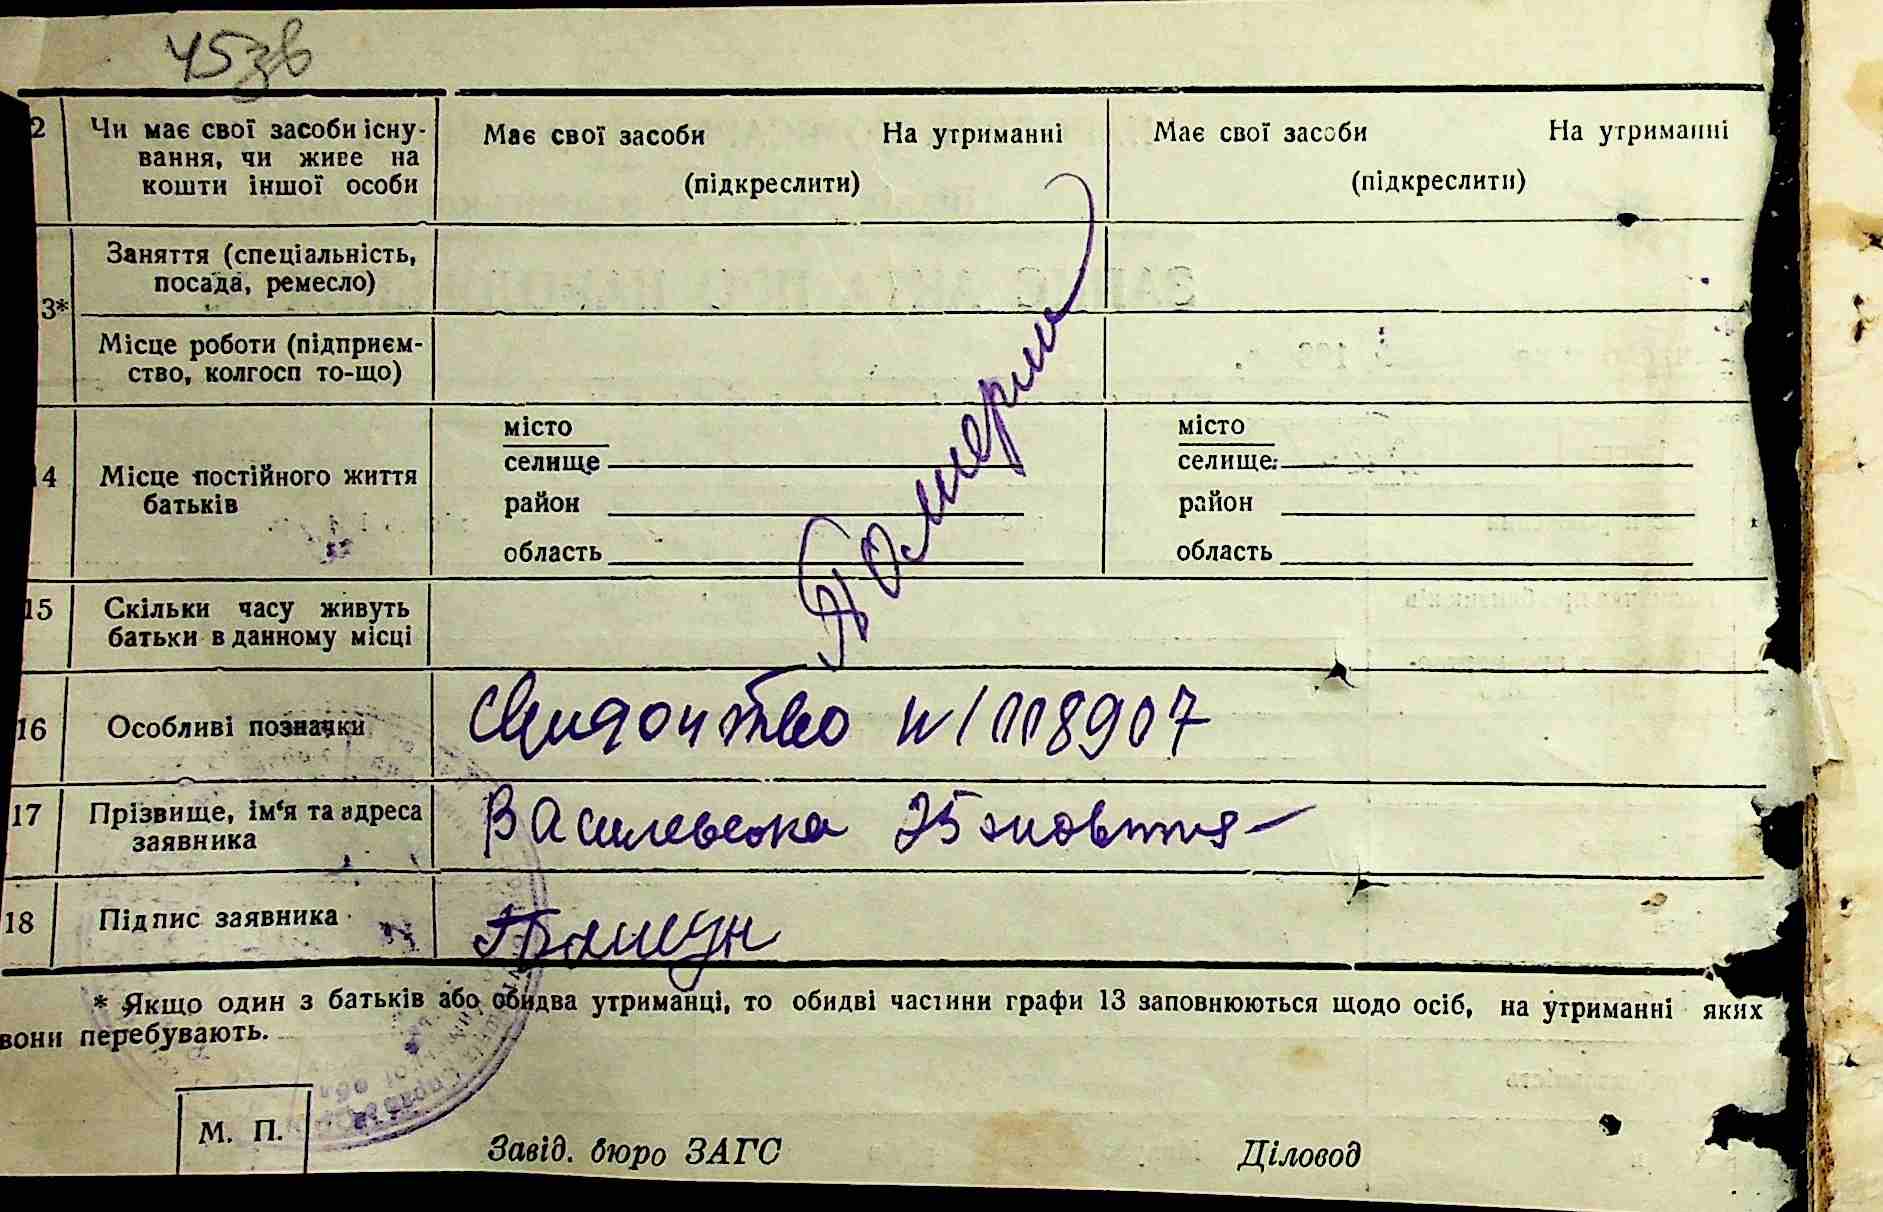 45зв
2 Чи має свої засоби існу-
вання, чи живе на
кошти іншої особи
Має свої засоби На утриманні
(підкреслити)
Має свої засоби На утриманні
(підкреслити)
3*
Заняття (спеціальність,
посада, ремесло)
Місце роботи (підприєм-
ство, колгосп то-що)
Померли
14 Місце постійного життя
батьків
місто
селище
район
область
місто
селище
район
область
15 Скільки часу живуть
батьки в данному місці
16 Особливі позначки
Свидоцтво № 1118907
17 Прізвище, ім'я та адреса
заявника
Василевська 25 жовтня
18 Підпис заявника
* Якщо один з батьків або обидва утриманці, то обидві частини графи 13 заповнюються щодо осіб, на утриманні яких
вони перебувають.
М. П.
Завід. бюро ЗАГС Діловод